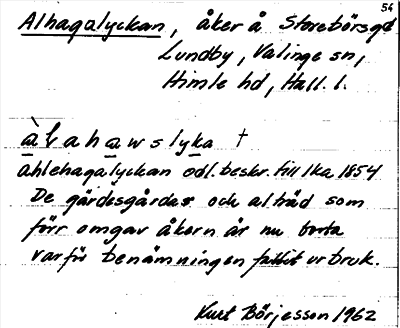 56
Alhagalyckan, åker å Storebörsgd
Lundby, Valinge sn,
Himle hd, Hall. l.
àlahawslyka †
ahlehagalyckan odl. beskr. till lka 1854
De gärdesgårdar och alträd som
förr omgav åkern är nu borta
varför benämningen fallit ur bruk.
Kurt Börjesson 1962